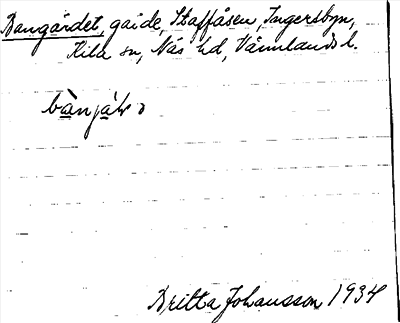 Bangärdet, gärde, Staffåsen, Ingersbyn,
Kila sn, Näs hd, Värmlands l.
Britta Johansson 1934